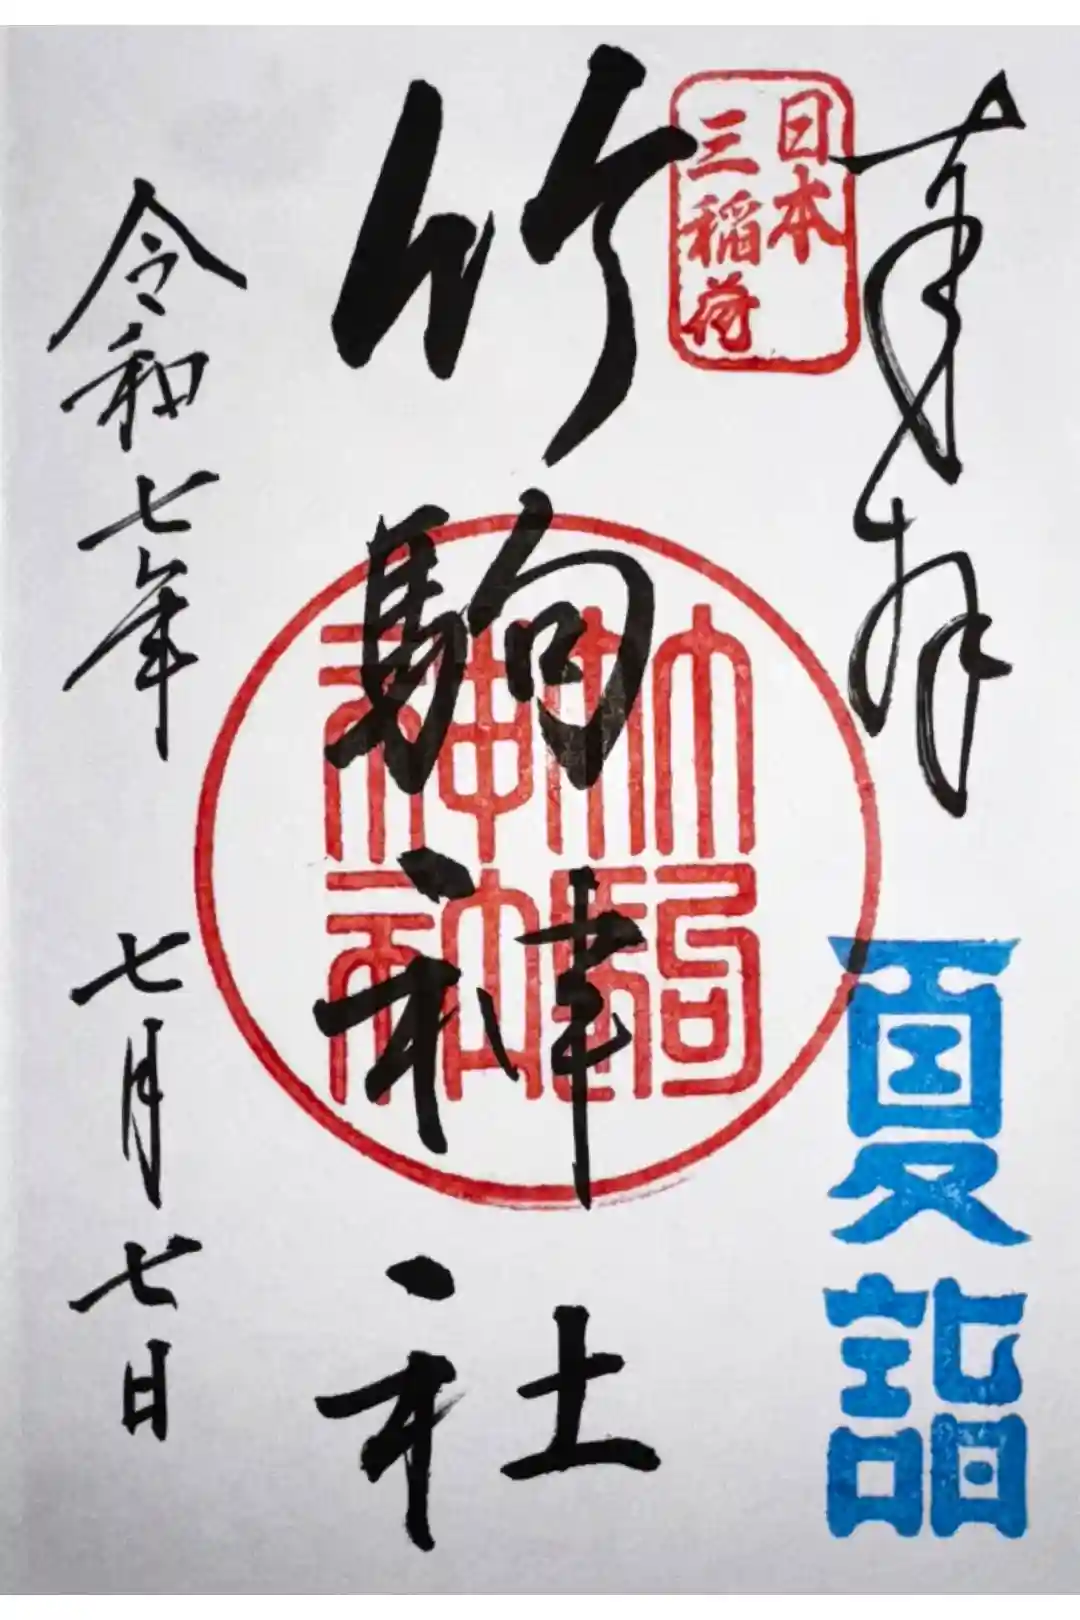 奉拝
夏詣
日本
三稲荷
竹駒神社
竹駒
神社
令和七年
七月七日